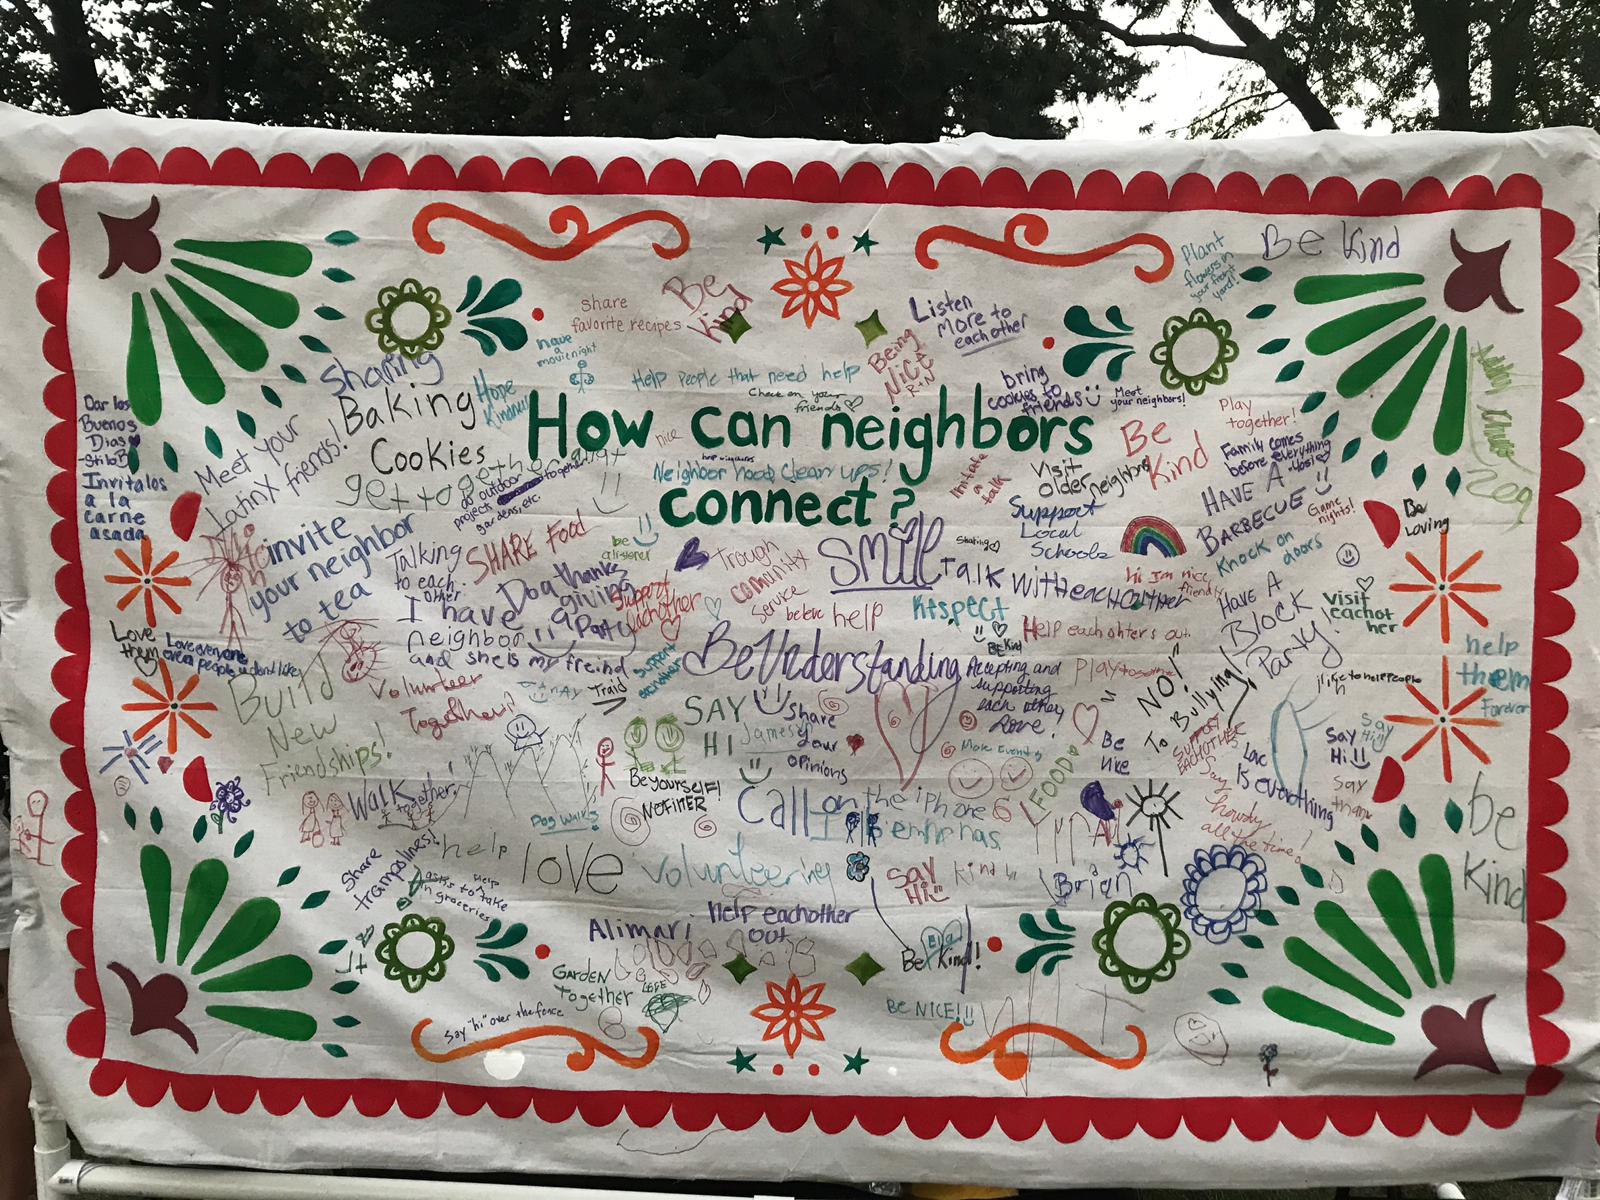 Be Kind
Plant
flowers in
your front
yard!
Be
Kind
share
favorite recipes
Listen
More to
each other
have a
movie night
Being
Nice
Sharing
Hope
Kindness
Help People that need help
Check on your
friends
bring
cookies to
friends
Meet
your neighbors!
Play
together!
Baking
Cookies
How can neighbors
connect?
nice
Neighborhood Clean ups!
Be
Kind
Family comes
before everything
Dar los
Buenos
Dias
Invitalos
a la
carne
asada
Meet your
LatinX friends!
get together
do outdoor
projects together
gardens, etc.
Visit
older neighbors
Support
Local
Schools
HAVE A
BARBECUE
Game
nights!
Be
Loving
Knock on
doors
invite
your neighbor
to tea
Talking
to each
other
SHARE Food
be
a listener
Do a thanks
giving
Party
Support
eachother
Trough
comunity
Service
SMILE
Sharing
Talk with eachother
hi Im nice
friendly
HAVE A
BLOCK
Party!
Visit
eachot
her
I have a
neighbor
and she is my freind
believe
help
Respect
Be Kind
Help each ohters out
help
them
Forever
Love
them
Love everyone
even people u dont like
Be Understanding
Accepting and
supporting
each other
Love!
Play
NO!
To Bullying!
i like to help people
Build
New
Friendships!
Volunteer
Together!
Support
eachother
SAY
HI
James
Share
your
opinions
Make Events
Be
nice
SUPPORT
EACHOTHER
Say
Hi!
Say
Hi!
Love
is everything
Say
howdy
all the time!
Say
Be yourself!
NO FINER
FOOD
Walk
together!
Dog Walks
Call on the iphone 6
be
Kind
Share
trampolines!
help
love
volunteering
SAY
Hi
kind
Brian
asks to take
in groceries
Alimari
help eachother
out
Be Kind!
Garden
Together
LOVE
BE NICE!!
Say "hi" over the fence